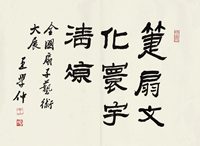 箑扇文
化寰宇
清凉
全國扇子藝術
大展
王學仲